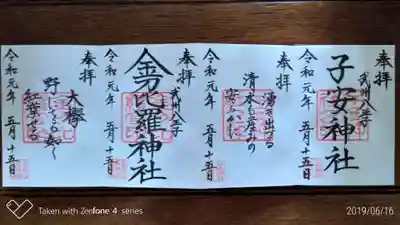 奉拝
武州八王子
子安神社
令和元年 五月十五日
奉拝
湧き出る
清水も産みの
令和元年 五月十五日
奉拝
武州八王子
金刀比羅神社
令和元年 五月十五日
奉拝
大欅
野に
令和元年 五月十五日
Taken with Zenfone 4 series
2019/06/16